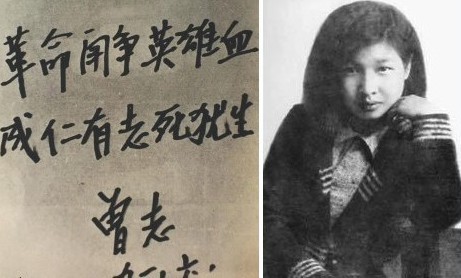 革命斗争英雄血
成仁有志死犹生
曾志